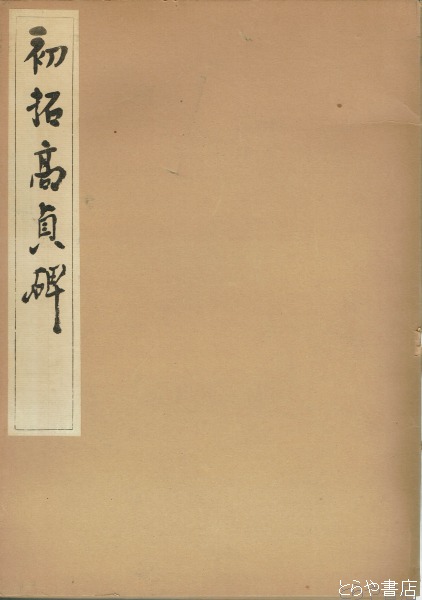 初拓高貞碑
とらや書店